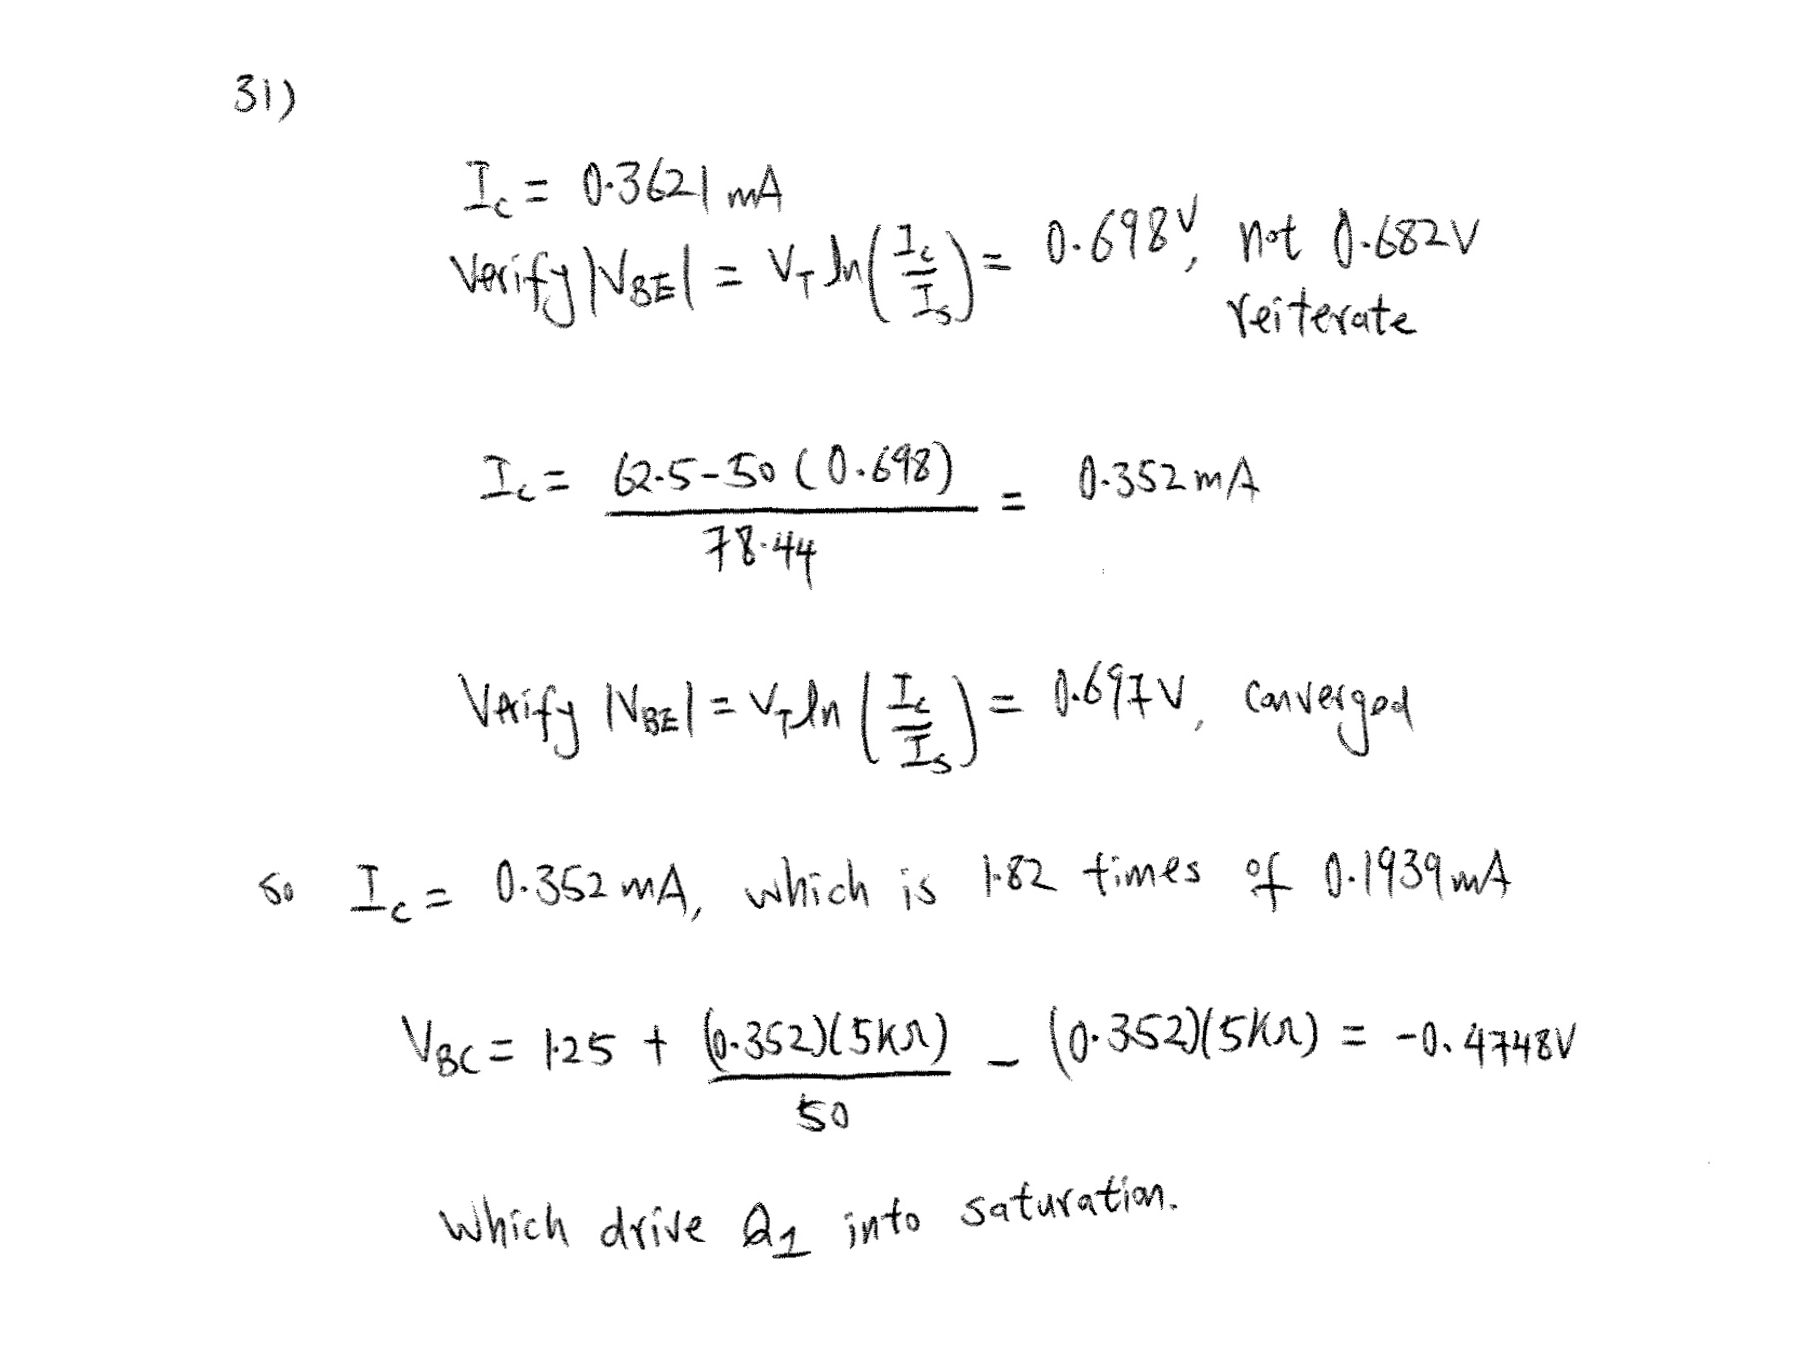 31)
I_c = 0.3621 mA
Verify |V_BE| = V_T ln(I_c / I_s) = 0.698V, not 0.682V
reiterate
I_c = (62.5 - 50 (0.698)) / 78.44 = 0.352 mA
Verify |V_BE| = V_T ln (I_c / I_s) = 0.697V, converged
so I_c = 0.352 mA, which is 1.82 times of 0.1939 mA
V_BC = 1.25 + (0.352)(5kΩ) / 50 - (0.352)(5kΩ) = -0.4748V
which drive Q_1 into saturation.